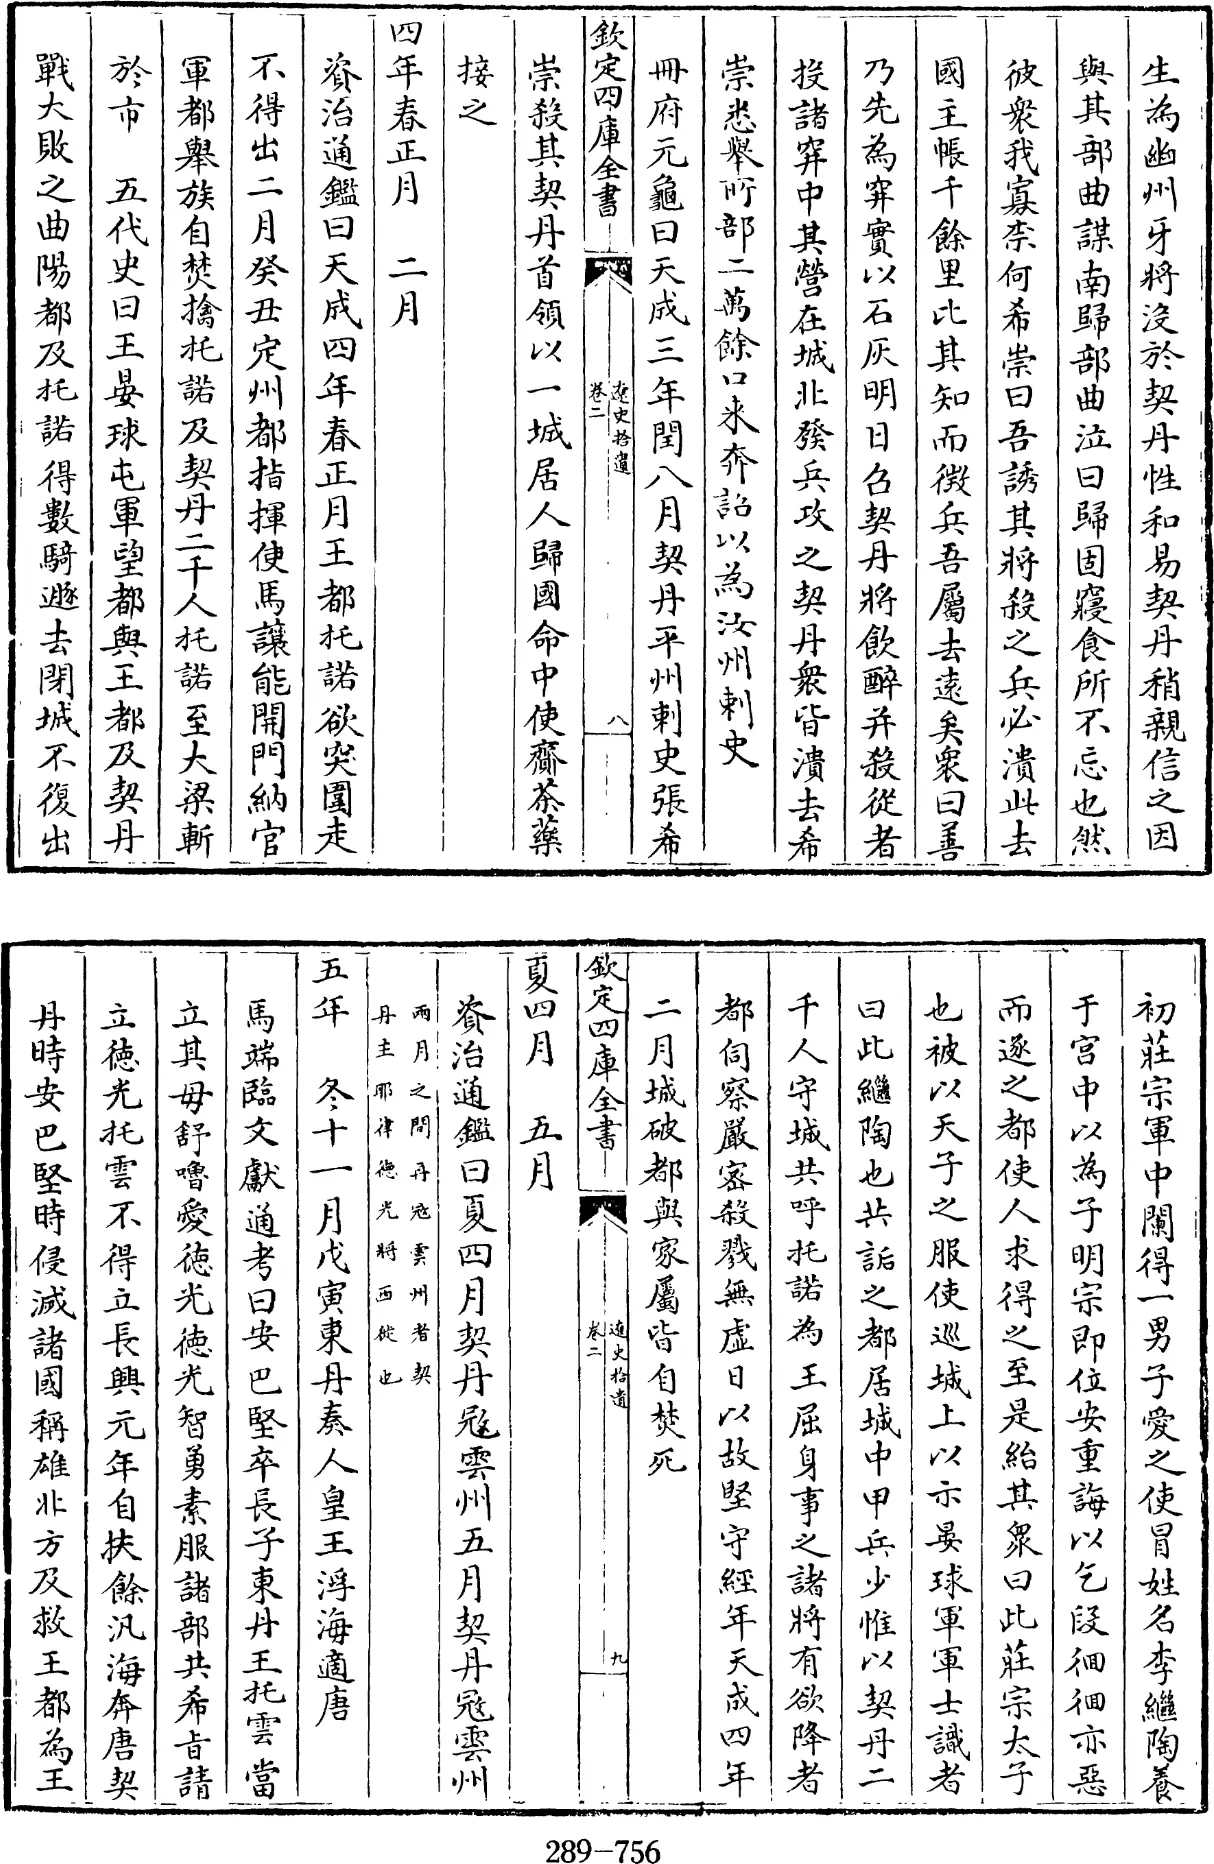 生為幽州牙將沒於契丹性和易契丹稍親信之因
與其部曲謀南歸部曲泣曰歸固寢食所不忘也然
彼衆我寡柰何希崇曰吾誘其將殺之兵必潰此去
國主帳千餘里比其知而徴兵吾屬去遠矣衆曰善
乃先為穽實以石灰明日召契丹將飲醉并殺從者
投諸穽中其營在城北發兵攻之契丹衆皆潰去希
崇悉舉所部二萬餘口來奔詔以為汝州刺史
冊府元龜曰天成三年閏八月契丹平州刺史張希
欽定四庫全書
遼史拾遺
卷二
八
崇殺其契丹首領以一城居人歸國命中使齎茶藥
接之
四年春正月　二月
資治通鑑曰天成四年春正月王都托諾欲突圍走
不得出二月癸丑定州都指揮使馬讓能開門納官
軍都舉族自焚擒托諾及契丹二千人托諾至大梁斬
於市　五代史曰王晏球屯軍望都與王都及契丹
戰大敗之曲陽都及托諾得數騎遯去閉城不復出
初莊宗軍中闌得一男子愛之使冒姓名李繼陶養
于宮中以為子明宗即位安重誨以乞段徊徊亦惡
而逐之都使人求得之至是紿其衆曰此莊宗太子
也被以天子之服使巡城上以示晏球軍軍士識者
曰此繼陶也共詬之都居城中甲兵少惟以契丹二
千人守城共呼托諾為王屈身事之諸將有欲降者
都伺察嚴密殺戮無虛日以故堅守經年天成四年
二月城破都與家屬皆自焚死
欽定四庫全書
遼史拾遺
卷二
九
夏四月　五月
資治通鑑曰夏四月契丹冦雲州五月契丹冦雲州
兩月之間再冦雲州者契
丹主耶律德光將西徙也
五年　冬十一月戊寅東丹奏人皇王浮海適唐
馬端臨文獻通考曰安巴堅卒長子東丹王托雲當
立其母舒嚕愛德光德光智勇素服諸部共希旨請
立德光托雲不得立長興元年自扶餘汎海奔唐契
丹時安巴堅時侵滅諸國稱雄北方及救王都為王
289-756